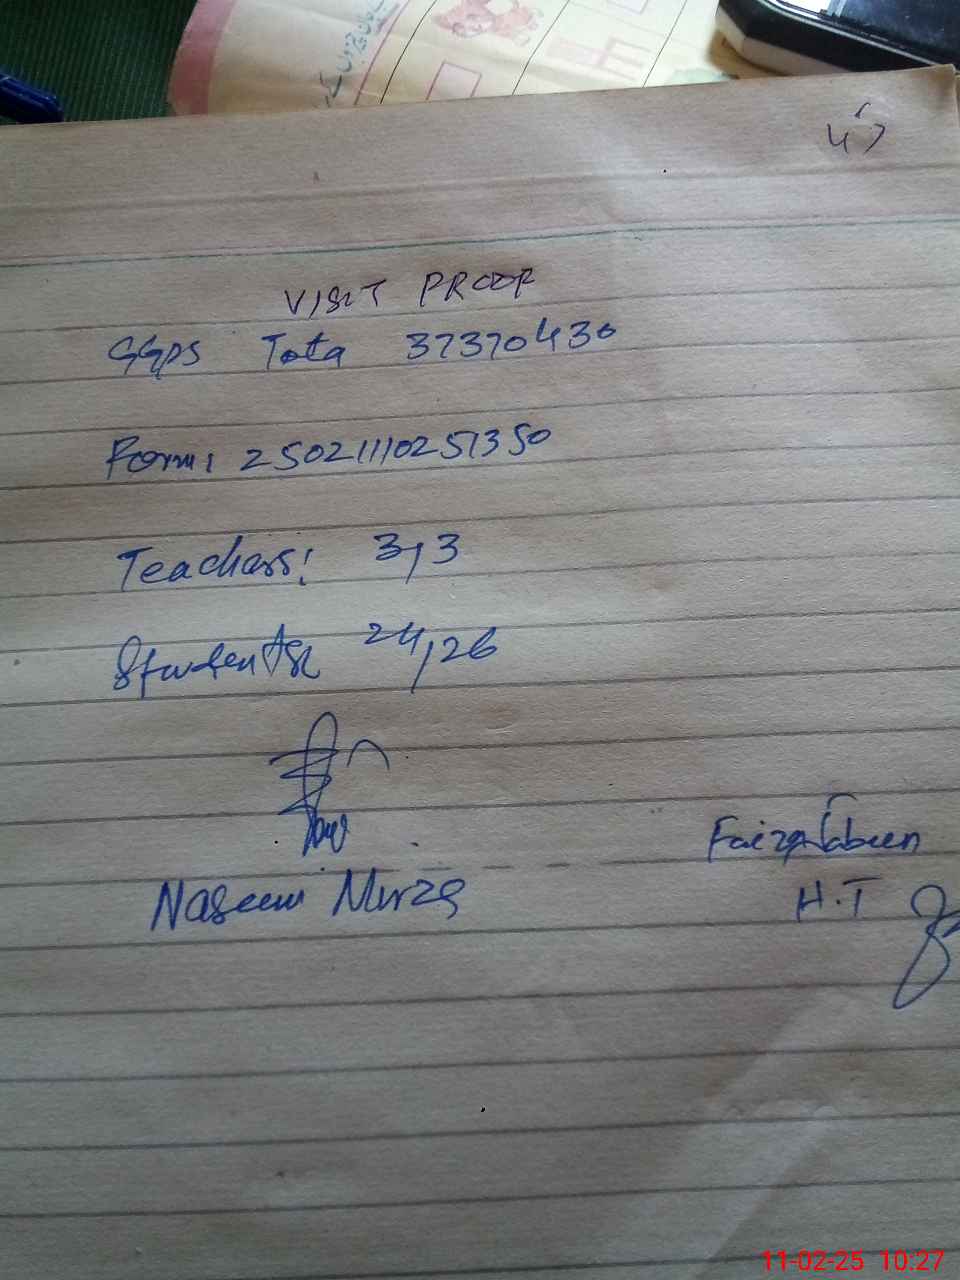 45
VISIT PROOF
GGPS Tota 37370430
Form: 25021110251350
Teachers: 3,3
Students: 24,26
Naseem Mirza
Faiza Jabeen
H.T
11-02-25 10:27